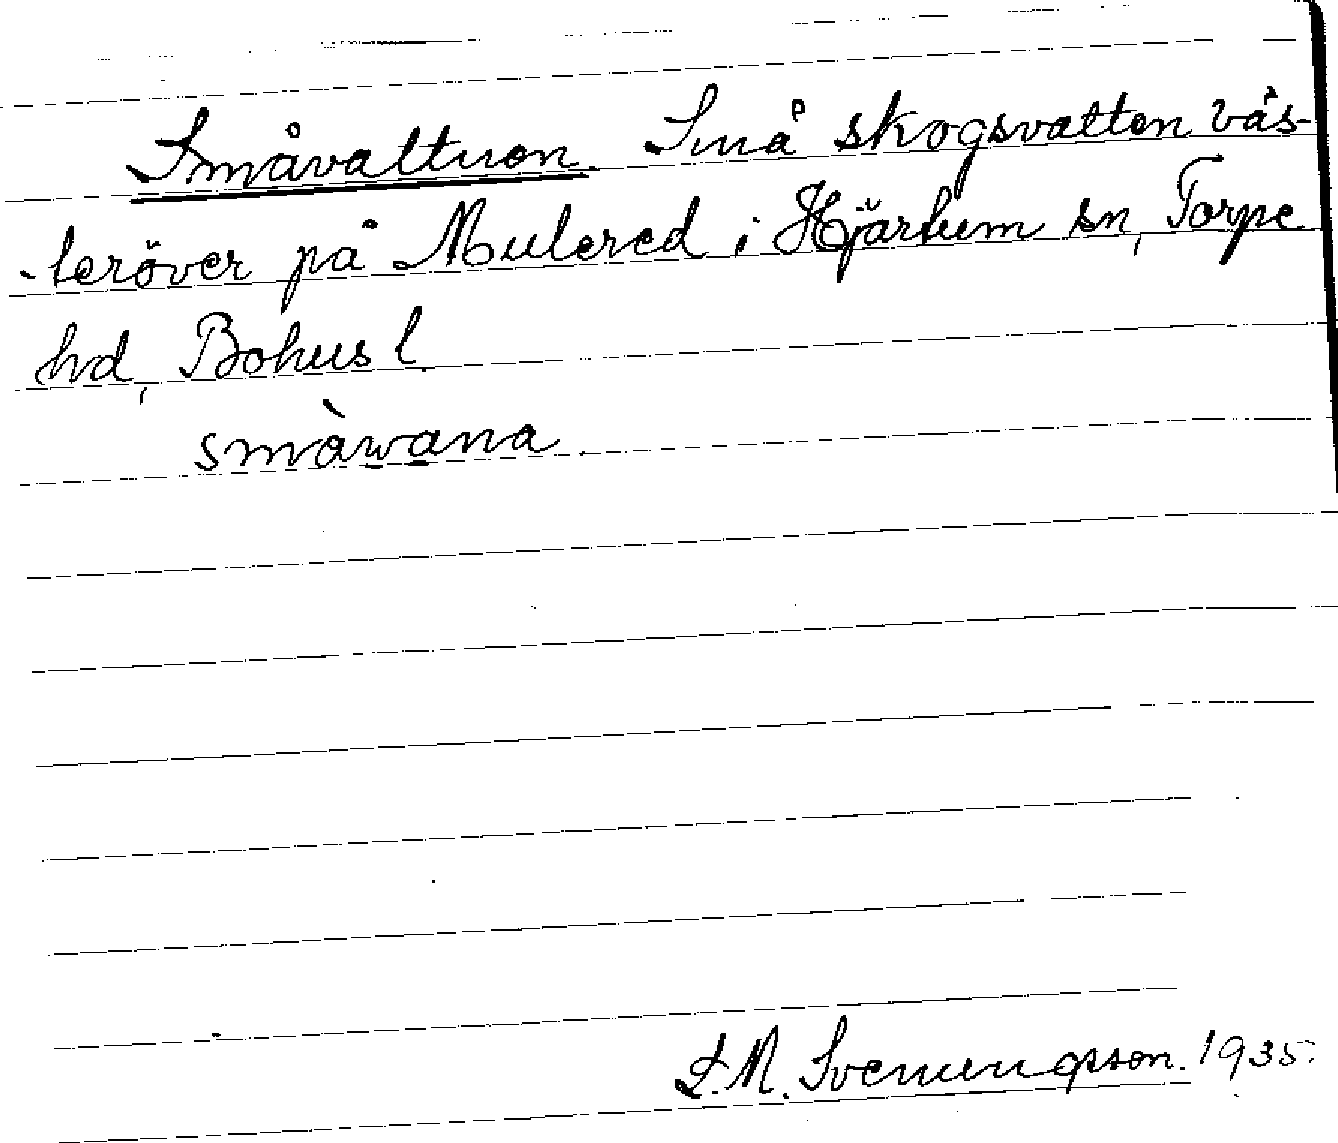 Småvattnen. Små skogsvatten väs-
teröver på Mulered i Hjärtum sn, Torpe
hd, Bohusl.
småvana
L.M. Svenungsson. 1935.